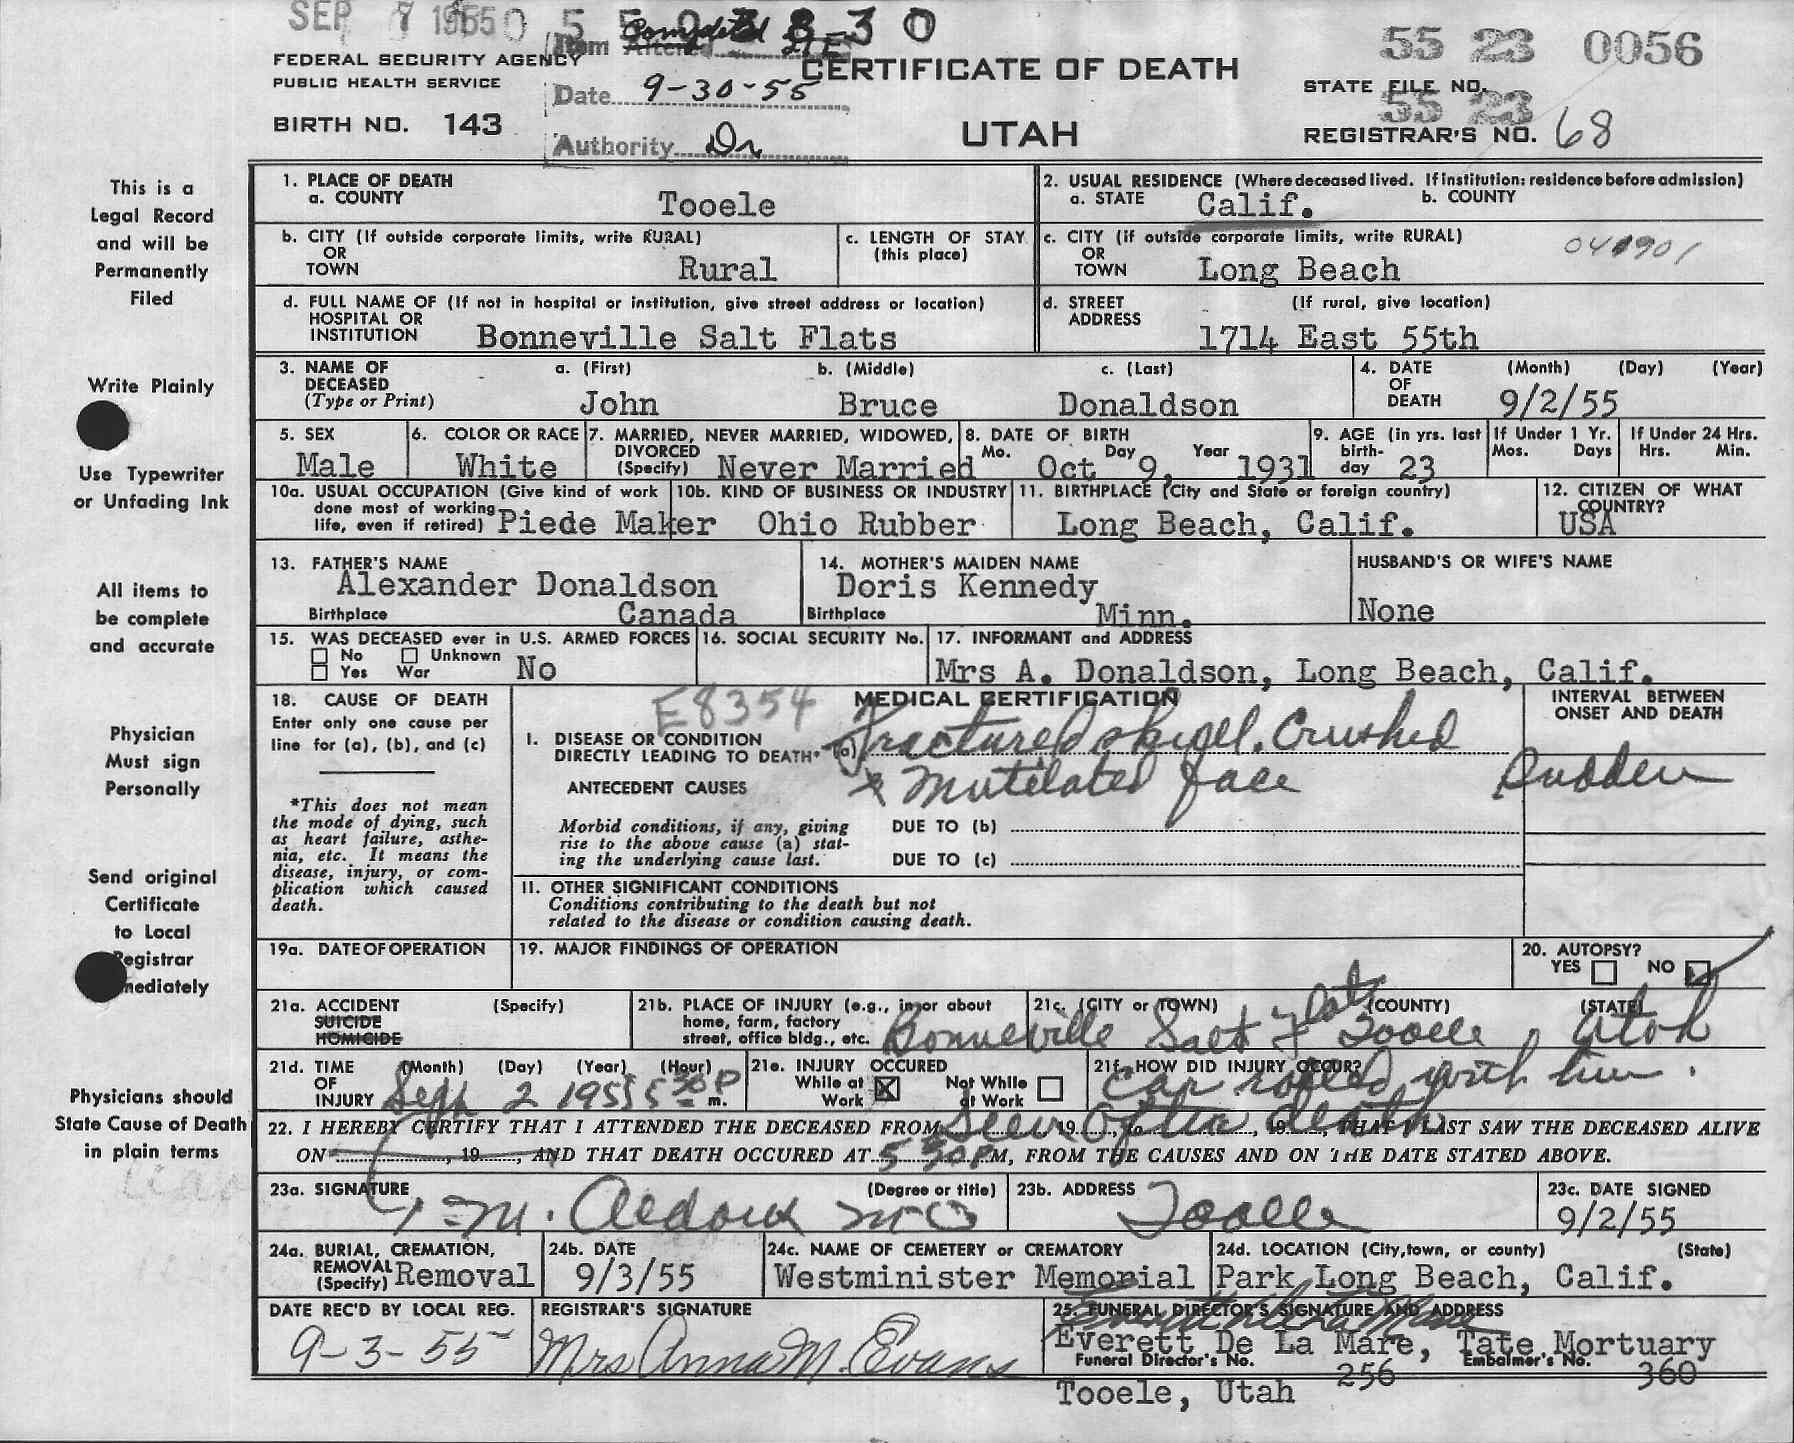 SEP 7 1955
55 23 0056
FEDERAL SECURITY AGENCY
PUBLIC HEALTH SERVICE
Item Completed
Date 9-30-55
Authority Dr
CERTIFICATE OF DEATH
UTAH
BIRTH NO. 143
STATE FILE NO.
55 23
REGISTRAR'S NO. 68
This is a
Legal Record
and will be
Permanently
Filed
Write Plainly
Use Typewriter
or Unfading Ink
All items to
be complete
and accurate
Physician
Must sign
Personally
Send original
Certificate
to Local
Registrar
mediately
Physicians should
State Cause of Death
in plain terms
1. PLACE OF DEATH
a. COUNTY Tooele
2. USUAL RESIDENCE (Where deceased lived. If institution: residence before admission)
a. STATE Calif. b. COUNTY
b. CITY (If outside corporate limits, write RURAL)
OR
TOWN Rural
c. LENGTH OF STAY
(this place)
c. CITY (if outside corporate limits, write RURAL)
OR
TOWN Long Beach
d. FULL NAME OF (If not in hospital or institution, give street address or location)
HOSPITAL OR
INSTITUTION Bonneville Salt Flats
d. STREET (If rural, give location)
ADDRESS
1714 East 55th
3. NAME OF a. (First) b. (Middle) c. (Last)
DECEASED
(Type or Print) John Bruce Donaldson
4. DATE (Month) (Day) (Year)
OF
DEATH 9/2/55
5. SEX
Male
6. COLOR OR RACE
White
7. MARRIED, NEVER MARRIED, WIDOWED,
DIVORCED
(Specify) Never Married
8. DATE OF BIRTH
Mo. Day Year
Oct 9, 1931
9. AGE (in yrs. last
birth-
day 23
If Under 1 Yr.
Mos. Days
If Under 24 Hrs.
Hrs. Min.
10a. USUAL OCCUPATION (Give kind of work
done most of working
life, even if retired) Piede Maker
10b. KIND OF BUSINESS OR INDUSTRY
Ohio Rubber
11. BIRTHPLACE (City and State or foreign country)
Long Beach, Calif.
12. CITIZEN OF WHAT
COUNTRY?
USA
13. FATHER'S NAME
Alexander Donaldson
Birthplace Canada
14. MOTHER'S MAIDEN NAME
Doris Kennedy
Birthplace Minn.
HUSBAND'S OR WIFE'S NAME
None
15. WAS DECEASED ever in U.S. ARMED FORCES
No Unknown
Yes War No
16. SOCIAL SECURITY No.
17. INFORMANT and ADDRESS
Mrs A. Donaldson, Long Beach, Calif.
18. CAUSE OF DEATH
Enter only one cause per
line for (a), (b), and (c)
*This does not mean
the mode of dying, such
as heart failure, asthe-
nia, etc. It means the
disease, injury, or com-
plication which caused
death.
E8354
MEDICAL CERTIFICATION
INTERVAL BETWEEN
ONSET AND DEATH
I. DISEASE OR CONDITION
DIRECTLY LEADING TO DEATH* (a) Fractured skull. Crushed
& Mutilated face Sudden
ANTECEDENT CAUSES
Morbid conditions, if any, giving
rise to the above cause (a) stat-
ing the underlying cause last.
DUE TO (b)
DUE TO (c)
II. OTHER SIGNIFICANT CONDITIONS
Conditions contributing to the death but not
related to the disease or condition causing death.
19a. DATE OF OPERATION
19. MAJOR FINDINGS OF OPERATION
20. AUTOPSY?
YES NO
21a. ACCIDENT (Specify)
SUICIDE
HOMICIDE
21b. PLACE OF INJURY (e.g., in or about
home, farm, factory
street, office bldg., etc.
21c. (CITY or TOWN) (COUNTY) (STATE)
Bonneville Salt Flats Tooele, Utah
21d. TIME (Month) (Day) (Year) (Hour)
OF
INJURY Sept 2 1955 5 30 P m.
21e. INJURY OCCURED
While at Work Not While at Work
21f. HOW DID INJURY OCCUR?
Car rolled with him.
22. I HEREBY CERTIFY THAT I ATTENDED THE DECEASED FROM Seen 19 after to death, 19, THAT I LAST SAW THE DECEASED ALIVE
ON, 19, AND THAT DEATH OCCURED AT 5 30 P.M, FROM THE CAUSES AND ON THE DATE STATED ABOVE.
23a. SIGNATURE (Degree or title)
M. Aldous MD
23b. ADDRESS
Tooele
23c. DATE SIGNED
9/2/55
24a. BURIAL, CREMATION,
REMOVAL
(Specify) Removal
24b. DATE
9/3/55
24c. NAME OF CEMETERY or CREMATORY
Westminister Memorial
24d. LOCATION (City, town, or county) (State)
Park Long Beach, Calif.
DATE REC'D BY LOCAL REG.
9-3-55
REGISTRAR'S SIGNATURE
Mrs Anna M. Evans
25. FUNERAL DIRECTOR'S SIGNATURE AND ADDRESS
Everett De La Mare
Everett De La Mare, Tate Mortuary
Funeral Director's No. 256 Embalmer's No. 360
Tooele, Utah